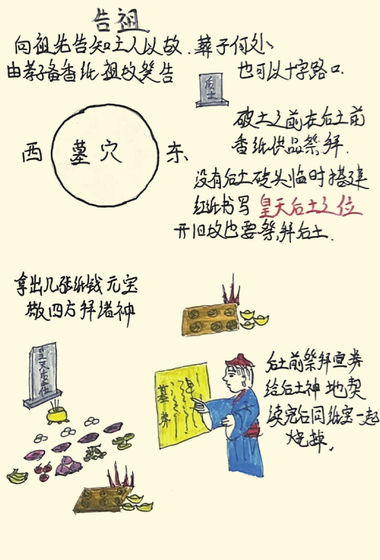 告祖
向祖先告知主人以故，葬于何处
由孝子备香纸祖坟焚告
也可以十字路口.
后土
西 墓穴 东
破土之前在后土前
香纸供品祭拜.
没有后土碑头临时搭建
红纸书写 皇天后土之位
开旧坟也要祭拜后土.
拿出几张纸钱元宝
散四方拜诸神
皇天后土之位
后土前祭拜烧券
给后土神 地契
读完后同纸宝一起
烧掉.
墓券